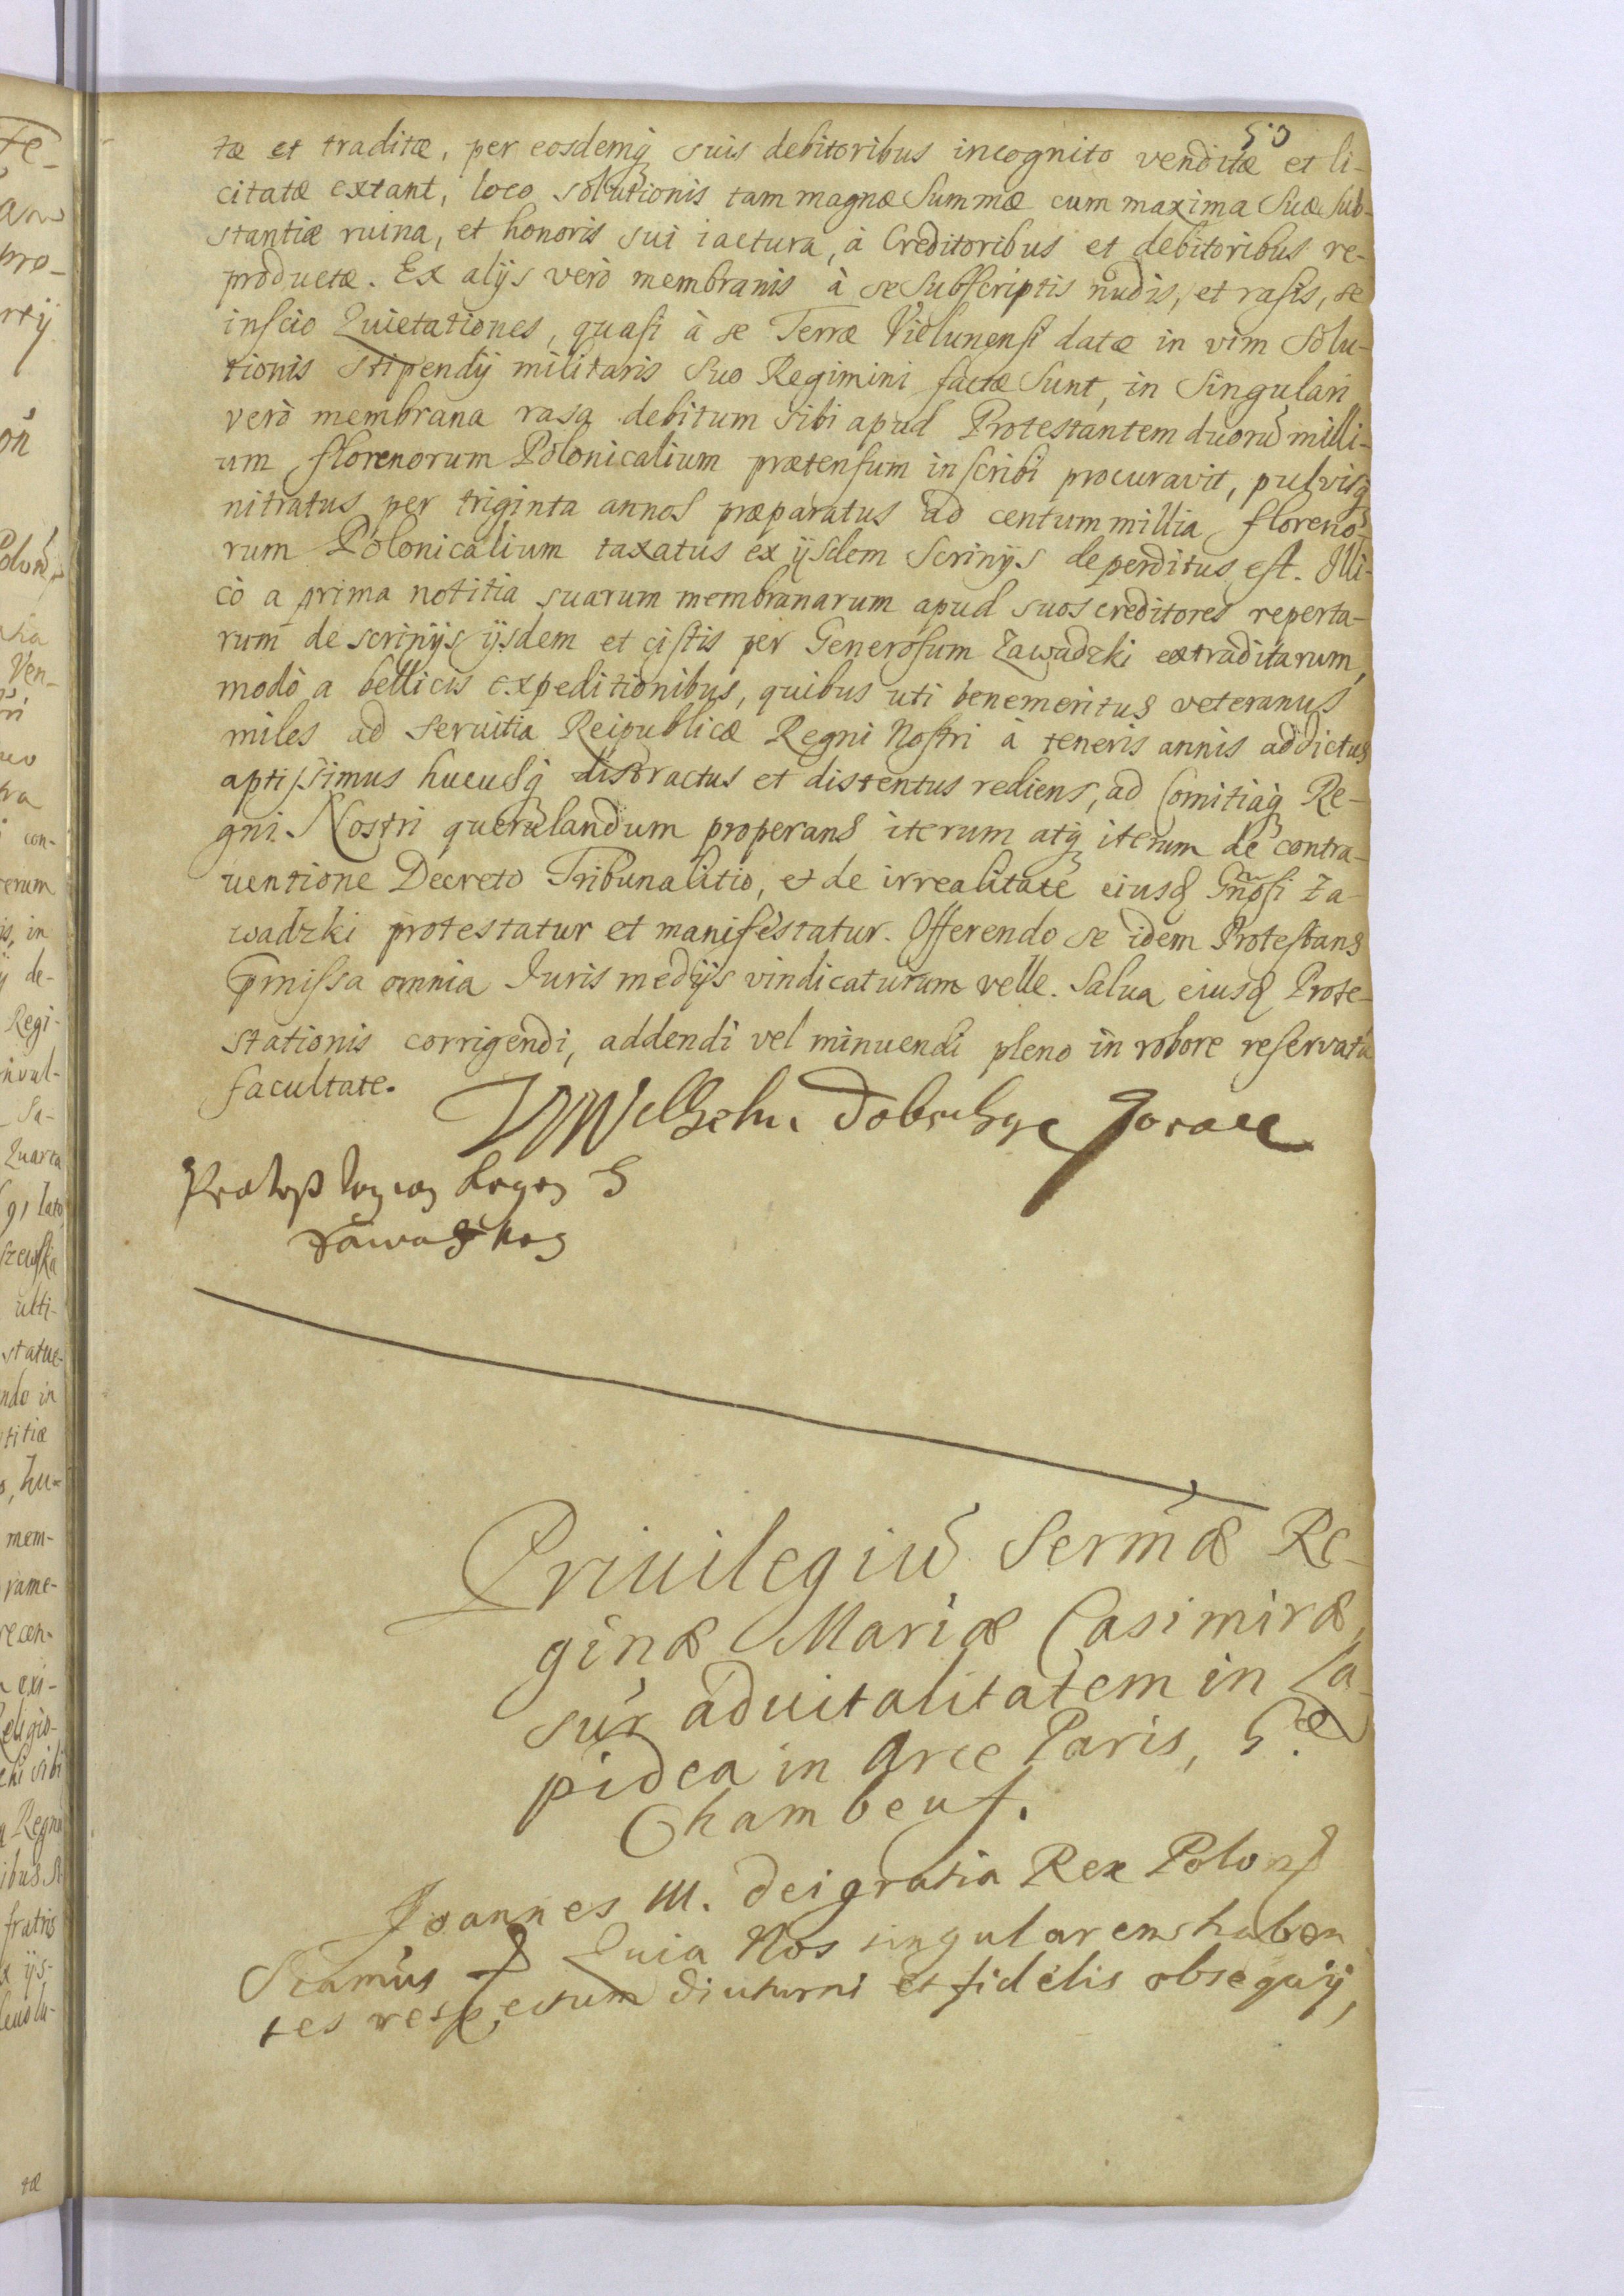 50
tæ et traditæ, per eosdemq suis debitoribus incognito venditæ et li-
citatæ extant, loco solutionis tam magnæ Summæ cum maxima Suæ Sub-
stantiæ ruina, et honoris sui iactura, à Creditoribus et debitoribus re-
productæ. Ex alijs verò membranis à se Subscriptis nudis, et rasis, se
inscio Quietationes, quasi à se Terræ Vielunensi datæ in vim Solu-
tionis stipendij militaris Suo Regimini factæ Sunt, in Singulari
verò membrana rasa debitum sibi apud Protestantem duorũ milli-
um florenorum Polonicalium prætensum inscribi procuravit, pulvisq
nitratus per triginta annos præparatus ad centum millia floreno-
rum Polonicalium taxatus ex ijsdem Scrinijs deperditus est. Illi-
cò a prima notitia suarum membranarum apud suos creditores reperta-
rum de scrinijs ijsdem et cistis per Generosum Zawadzki extraditarum,
modò a bellicis expeditionibus, quibus uti benemeritus veteranus
miles ad seruitia Reipublicæ Regni Nostri à teneris annis addictus
aptissimus hucusq distractus et distentus rediens, ad Comitiaq Re-
gni Nostri querulandum properans iterum atq iterum de contra-
uentione Decreto Tribunalitio, et de irrealitate eiusd Gñosi Za-
wadzki protestatur et manifestatur. Offerendo se idem Protestans
pmissa omnia Iuris medijs vindicaturum velle. Salua eiusd Prote-
stationis corrigendi, addendi vel minuendi pleno in robore reservatâ
facultate.
Privilegiũ Sermæ Re-
ginæ Mariæ Casimiræ,
sup aduitalitatem in La-
pidea in Arce Paris,
Chambeuf.
Joannes III. Dei gratia Rex Polon
Scamus Quia Nos singularem haben
tes respectum diuturni et fidelis obsequij,